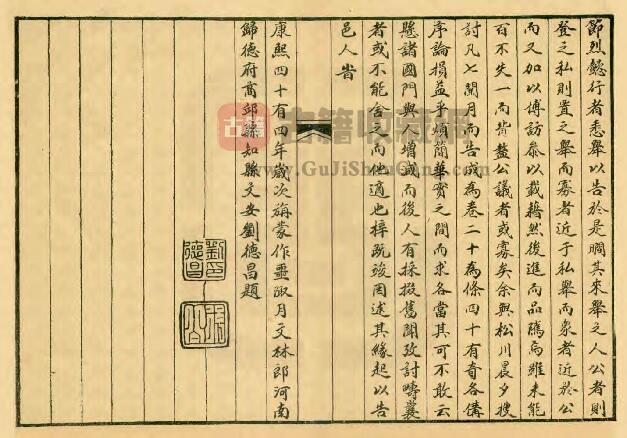 節烈懿行者悉舉以告於是瞷其来舉之人公者則
登之私則置之舉而寡者近于私舉而衆者近於公
而又加以傅訪叅以載籍然後進而品隲焉雖未能
百不失一而背盩公議者或寡矣余與松川晨夕搜
討凡七閱月而告成為卷二十為條四十有奇各僃
序論損益乎煩簡華實之間而求各當其可不敢云
懸諸國門與人增減而後人有採掇舊聞攷討疇曩
者或不能舍之而他適也梓既竣因述其緣起以告
邑人旹
康熙四十有四年歲次旃蒙作噩月文林郎河南
歸德府商邱縣知縣文安劉德昌題
劉印德昌
古籍 古籍收藏网
www.GuJiShouCang.com